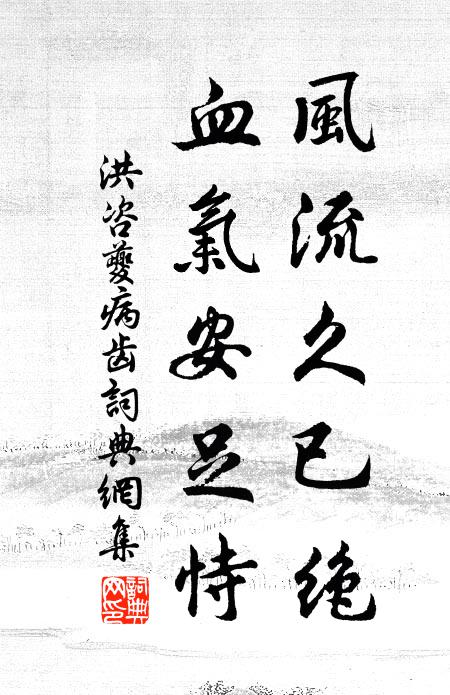 風流久已绝
血氣安足恃
洪咨夔病齿詞典網集
詞典網印